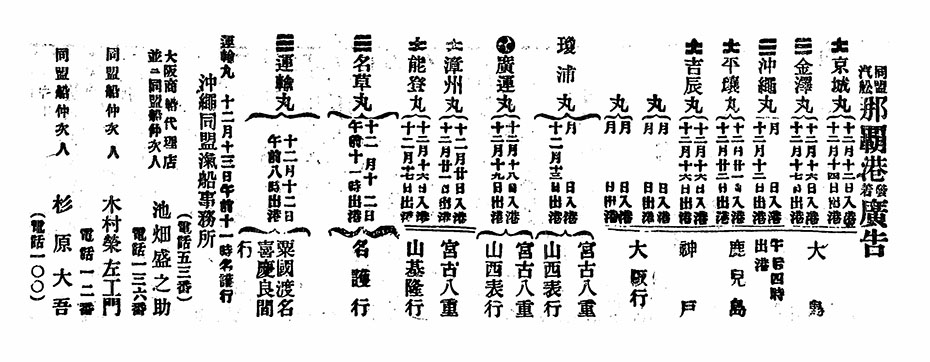 同盟汽船那覇港發着廣告
京城丸 十二月十二日入港 十二月十四日出港
金澤丸 十二月十六日入港
沖繩丸 月 日入港 十二月十三日 出港 午后四時
平壤丸 十二月廿一日入港 十二月廿二日出港
吉辰丸 十二月十六日入港 十二月十六日出港
大島
鹿兒島
神戸
大阪行
丸 月 日入港 月 日出港
丸 月 日入港 月 日出港
瓊浦丸 月 日入港 十二月十三日出港
宮古八重山西表行
廣運丸 十二月十八日入港 十二月十九日出港
宮古八重山西表行
漳州丸 十二月廿日入港 十二月廿二日出港
能登丸 十二月十六日入港 十二月十七日出港
宮古八重山基隆行
名草丸 十二月十二日 午前十一時出港
名護行
運輸丸 十二月十二日 午前八時出港
粟國渡名喜慶良間行
運輸丸 十二月十三日午前十一時名護行
沖繩同盟滊船事務所
大阪商船代理店
並ニ同盟船仲次人
池畑盛之助
(電話五三番)
電話一三六番
同盟船仲次人 木村榮左工門
電話一二番
同盟船仲次人 杉原大吾
(電話一〇〇)